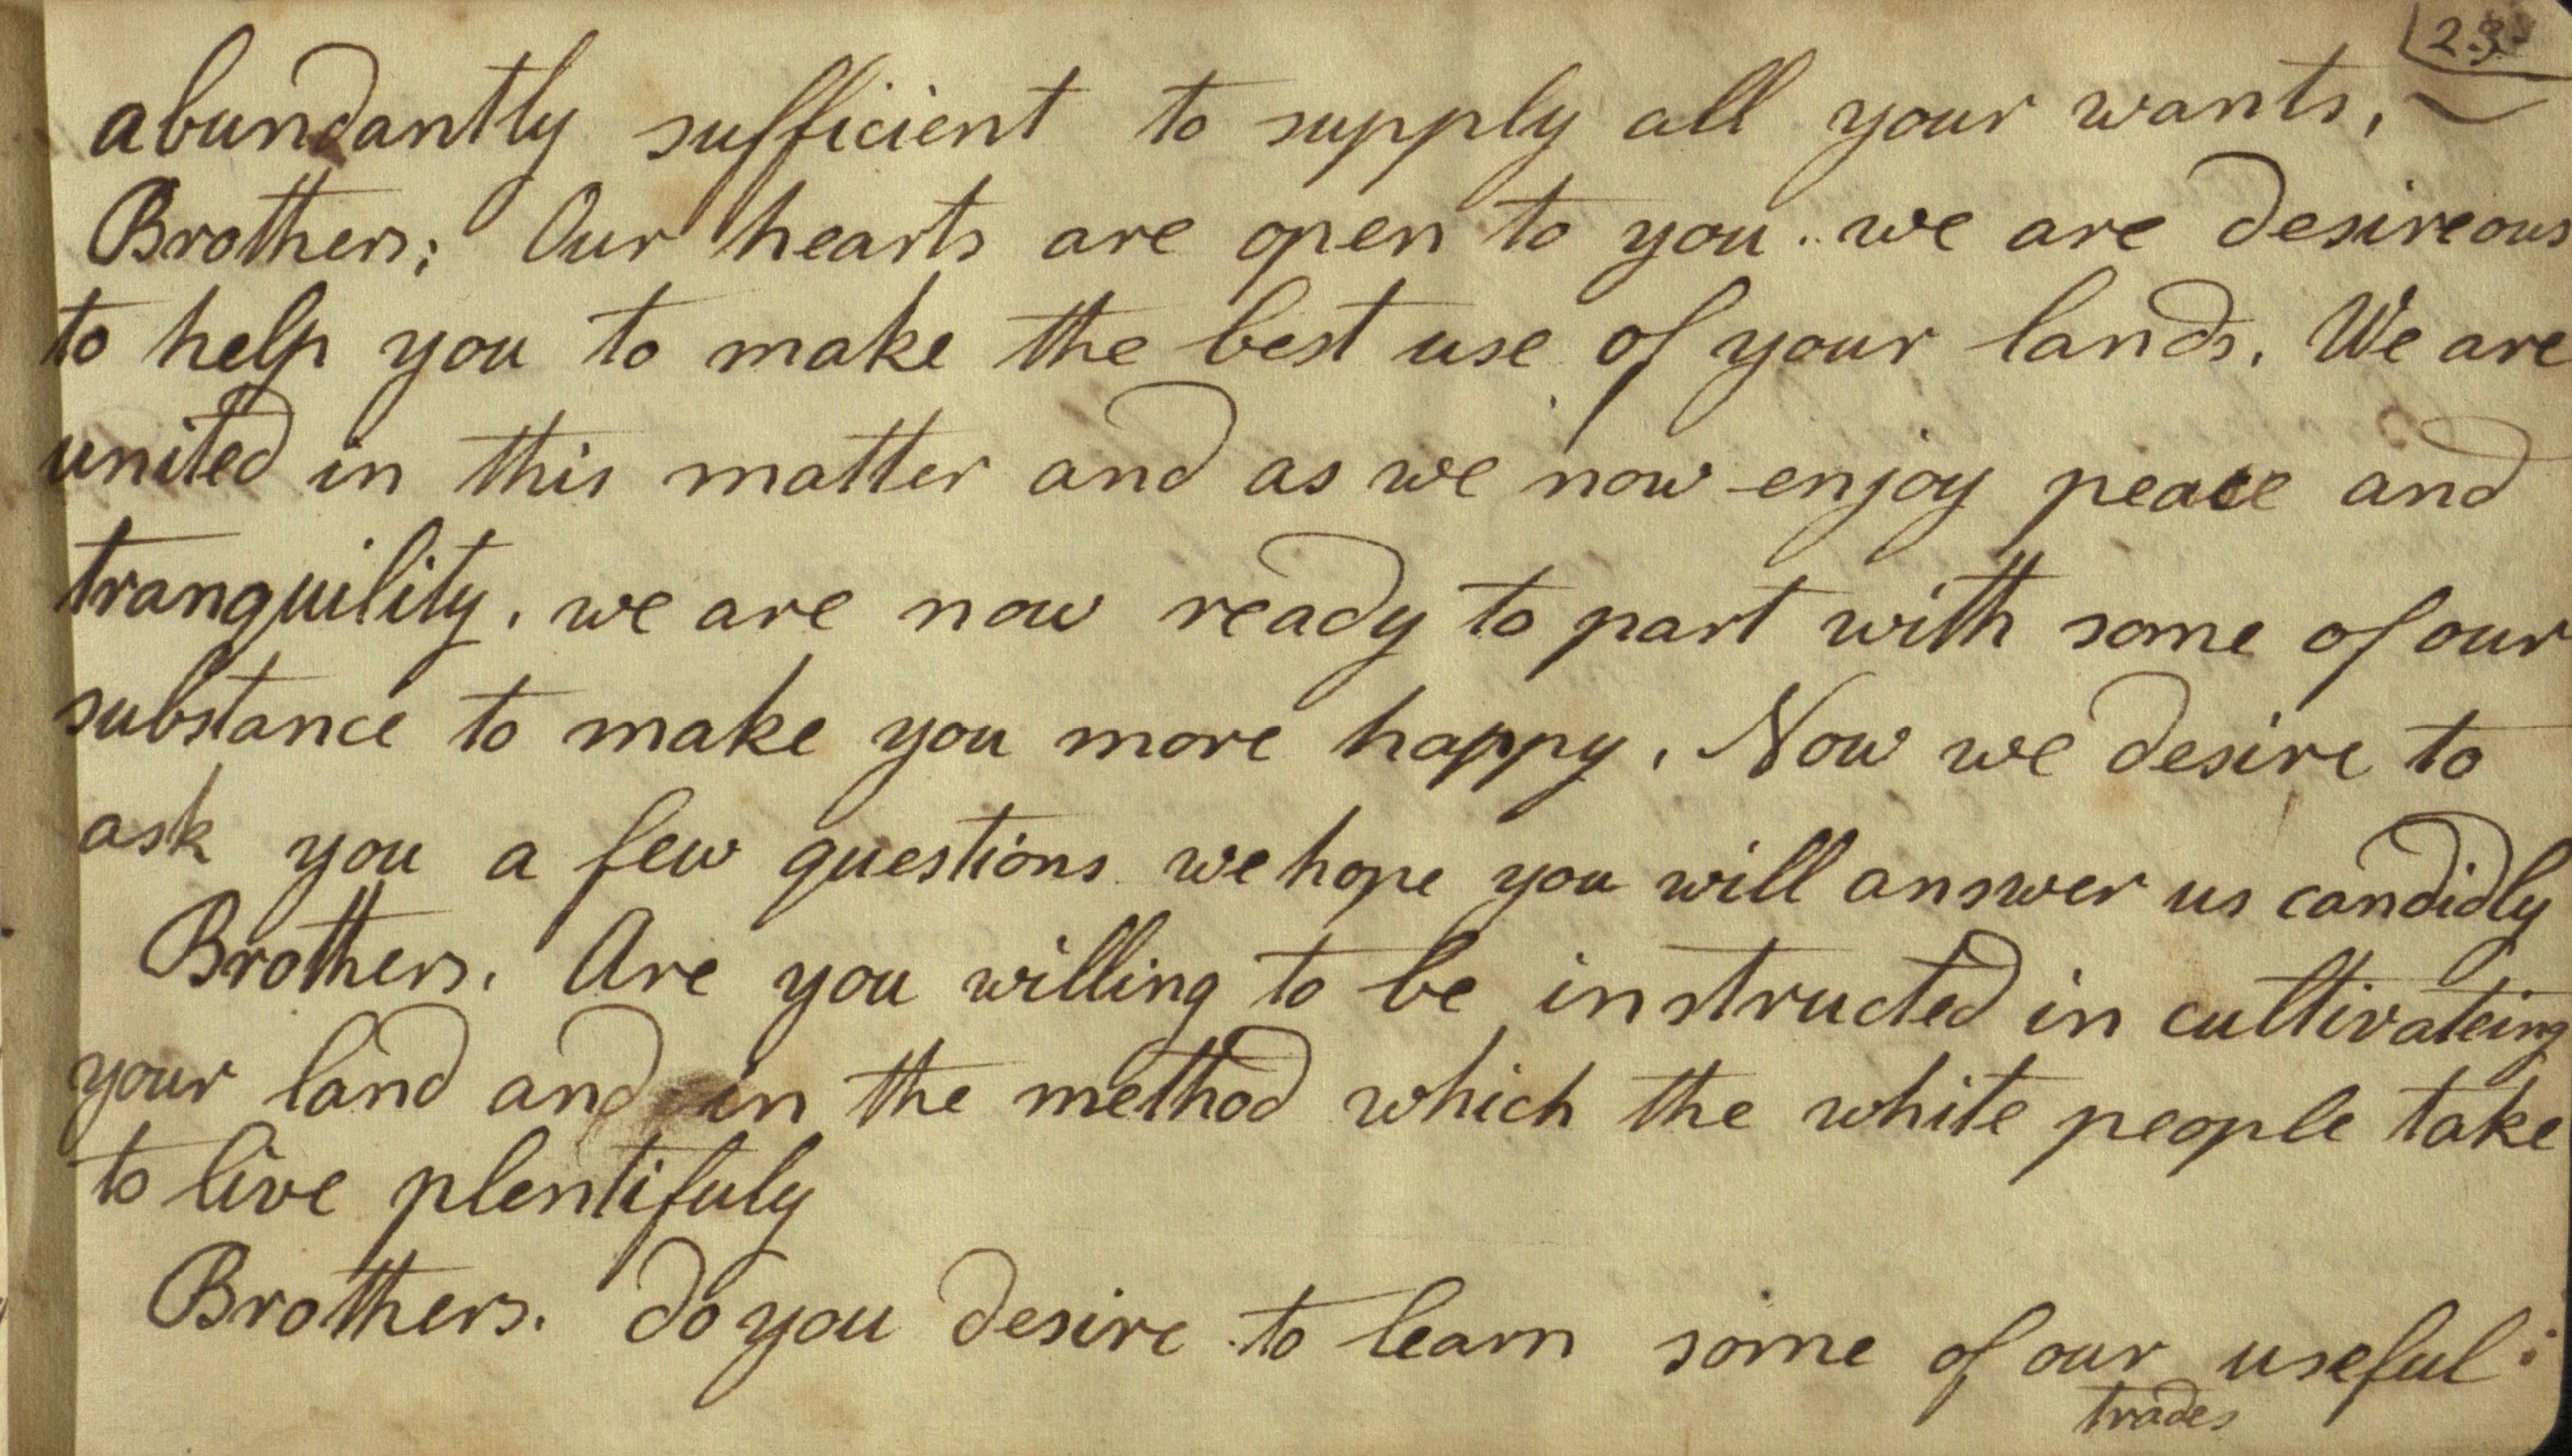 23
abundantly sufficient to supply all your wants,
Brothers; Our hearts are open to you. we are desireous
to help you to make the best use of your lands. We are
united in this matter and as we now enjoy peace and
tranquility, we are now ready to part with some of our
substance to make you more happy, Now we desire to
ask you a few questions we hope you will answer us candidly
Brothers. Are you willing to be instructed in cultivateing
your land and in the method which the white people take
to live plentifuly
Brothers. do you desire to learn some of our useful
trades